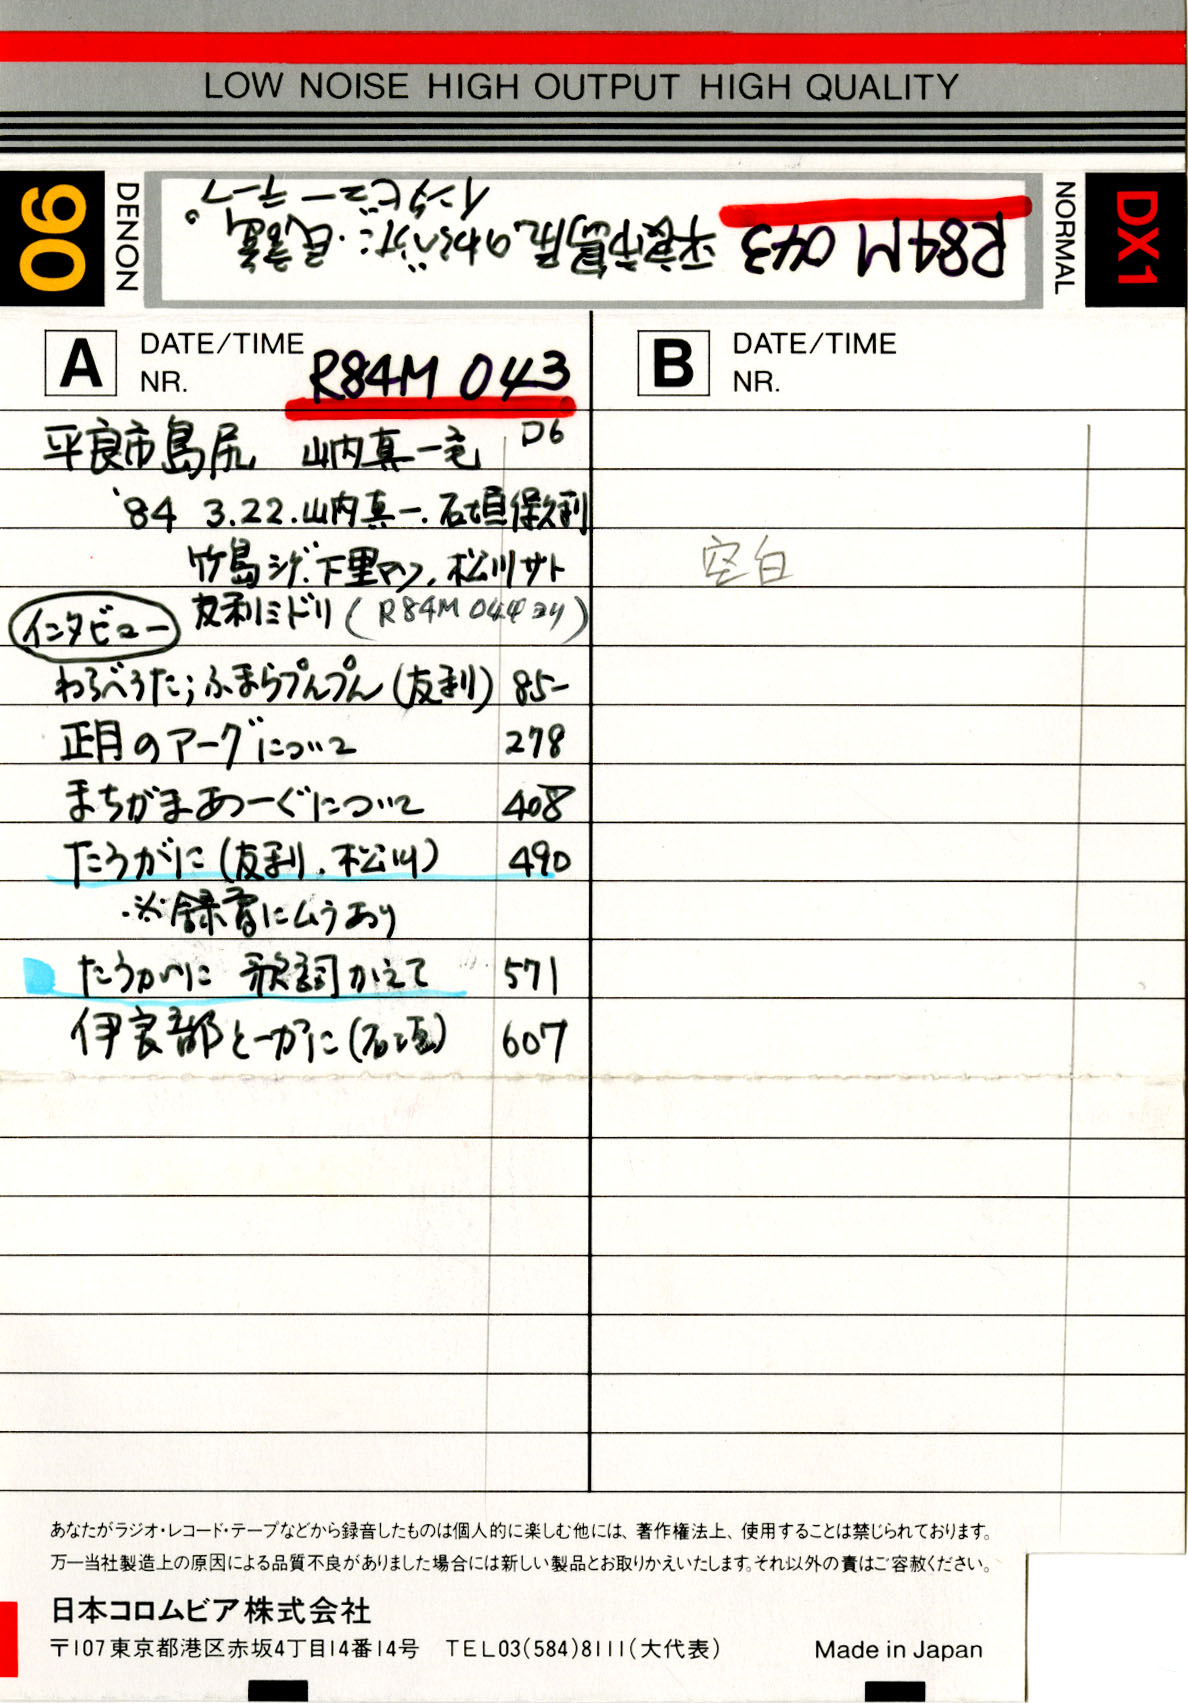 LOW NOISE HIGH OUTPUT HIGH QUALITY
90
DENON
R84M 043 平良市島尻のわらべうた・民謡
インタビューテープ。
NORMAL
DX1
A DATE/TIME
NR. R84M 043
平良市島尻 山内真一宅 D6
'84 3.22.山内真一.石垣保久利
竹島シゲ.下里マツ.松川サト
インタビュー 友利ミドリ(R84M044ヨリ)
わらべうた;ふまらぷんぷん(友利) 85-
正月のアーグについて 278
まちがまあつーぐについて 408
たうがに(友利.松川) 490
※録音にムラあり
たうがに 歌詞かえて 571
伊良部とーがに(石垣) 607
B DATE/TIME
NR.
空白
あなたがラジオ・レコード・テープなどから録音したものは個人的に楽しむ他には、著作権法上、使用することは禁じられております。
万一当社製造上の原因による品質不良がありました場合には新しい製品とお取りかえいたします。それ以外の責はご容赦ください。
日本コロムビア株式会社
〒107東京都港区赤坂4丁目14番14号 TEL03(584)8111(大代表) Made in Japan